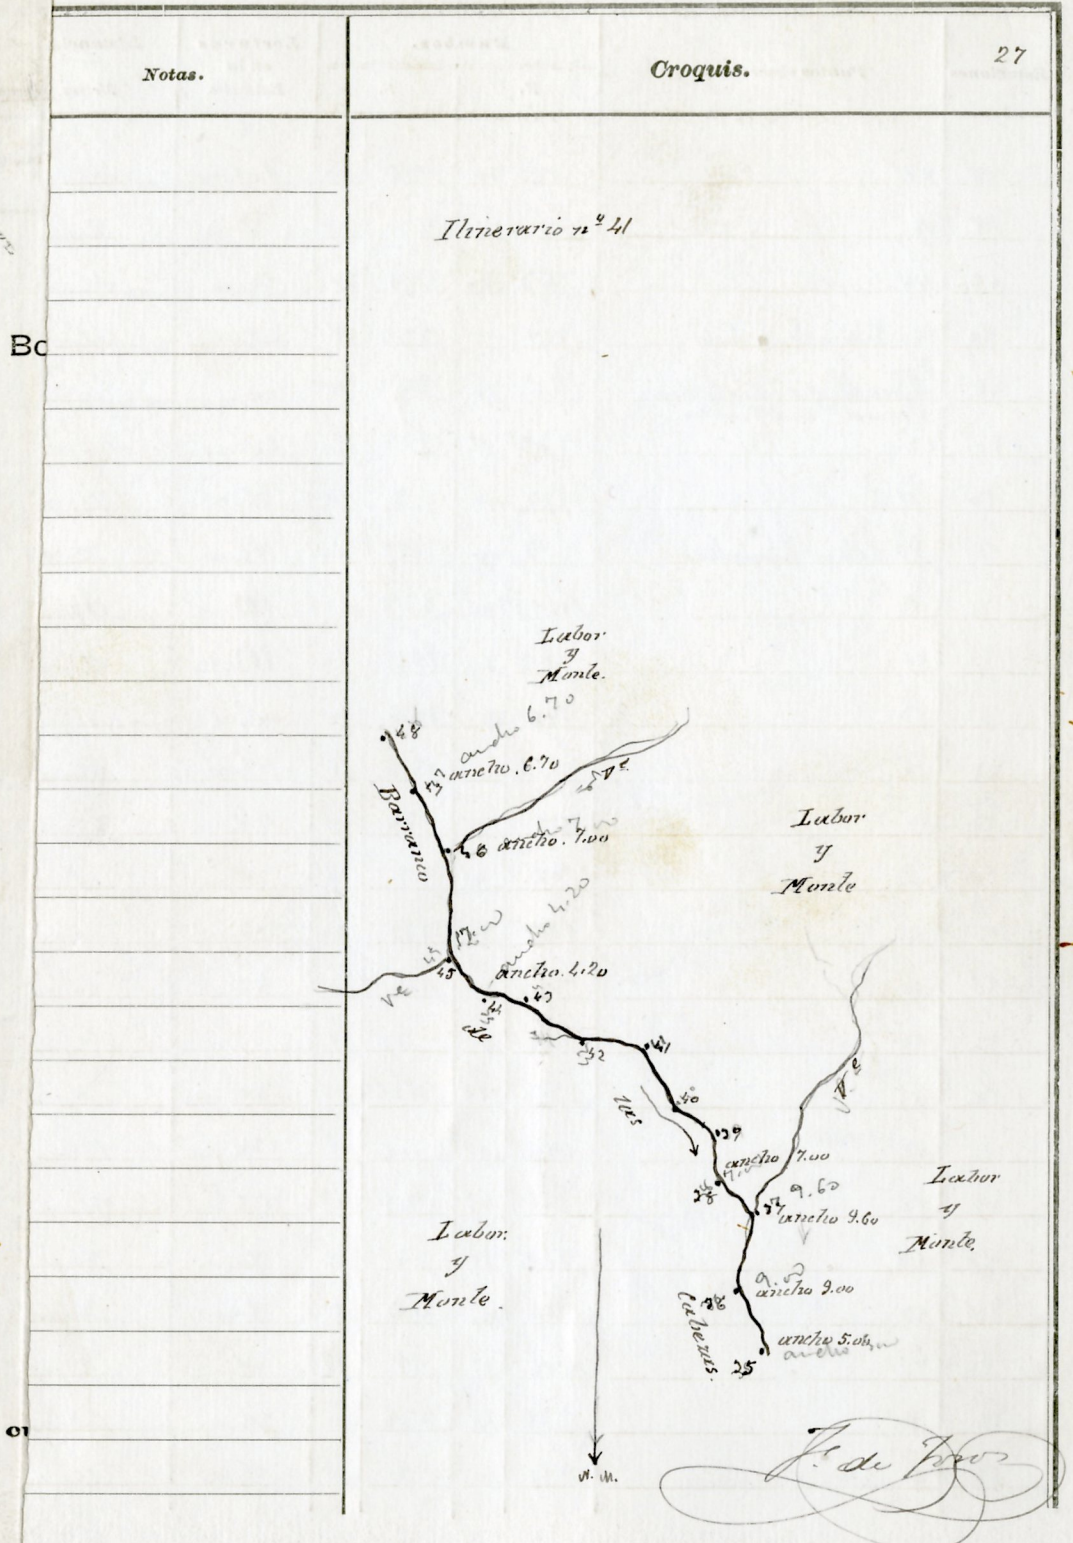 27
Notas.
Croquis.
Itinerario nº 41
Bo
Labor
y
Monte.
48
ancho 6.70
ancho. 6.70
Barranco
Vª
46 ancho. 7.00
Labor
y
Monte
ancho 4.20
45
ancho. 4.20
43
44
de
42
41
40
las
39
ancho 7.00
38
9.60
37 ancho 9.60
Labor
y
Monte.
Labor.
y
Monte.
9.00
ancho 9.00
36
Cabezas.
ancho 5.00
ancho
N. M.